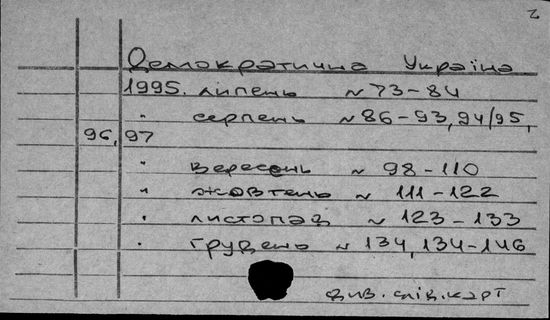 2
Демократична Україна
1995. липень № 73-84
" серпень № 86-93, 94/95,
96, 97
" вересень № 98-110
" жовтень № 111-122
" листопад № 123-133
" грудень № 134, 134-146
див. слів. карт